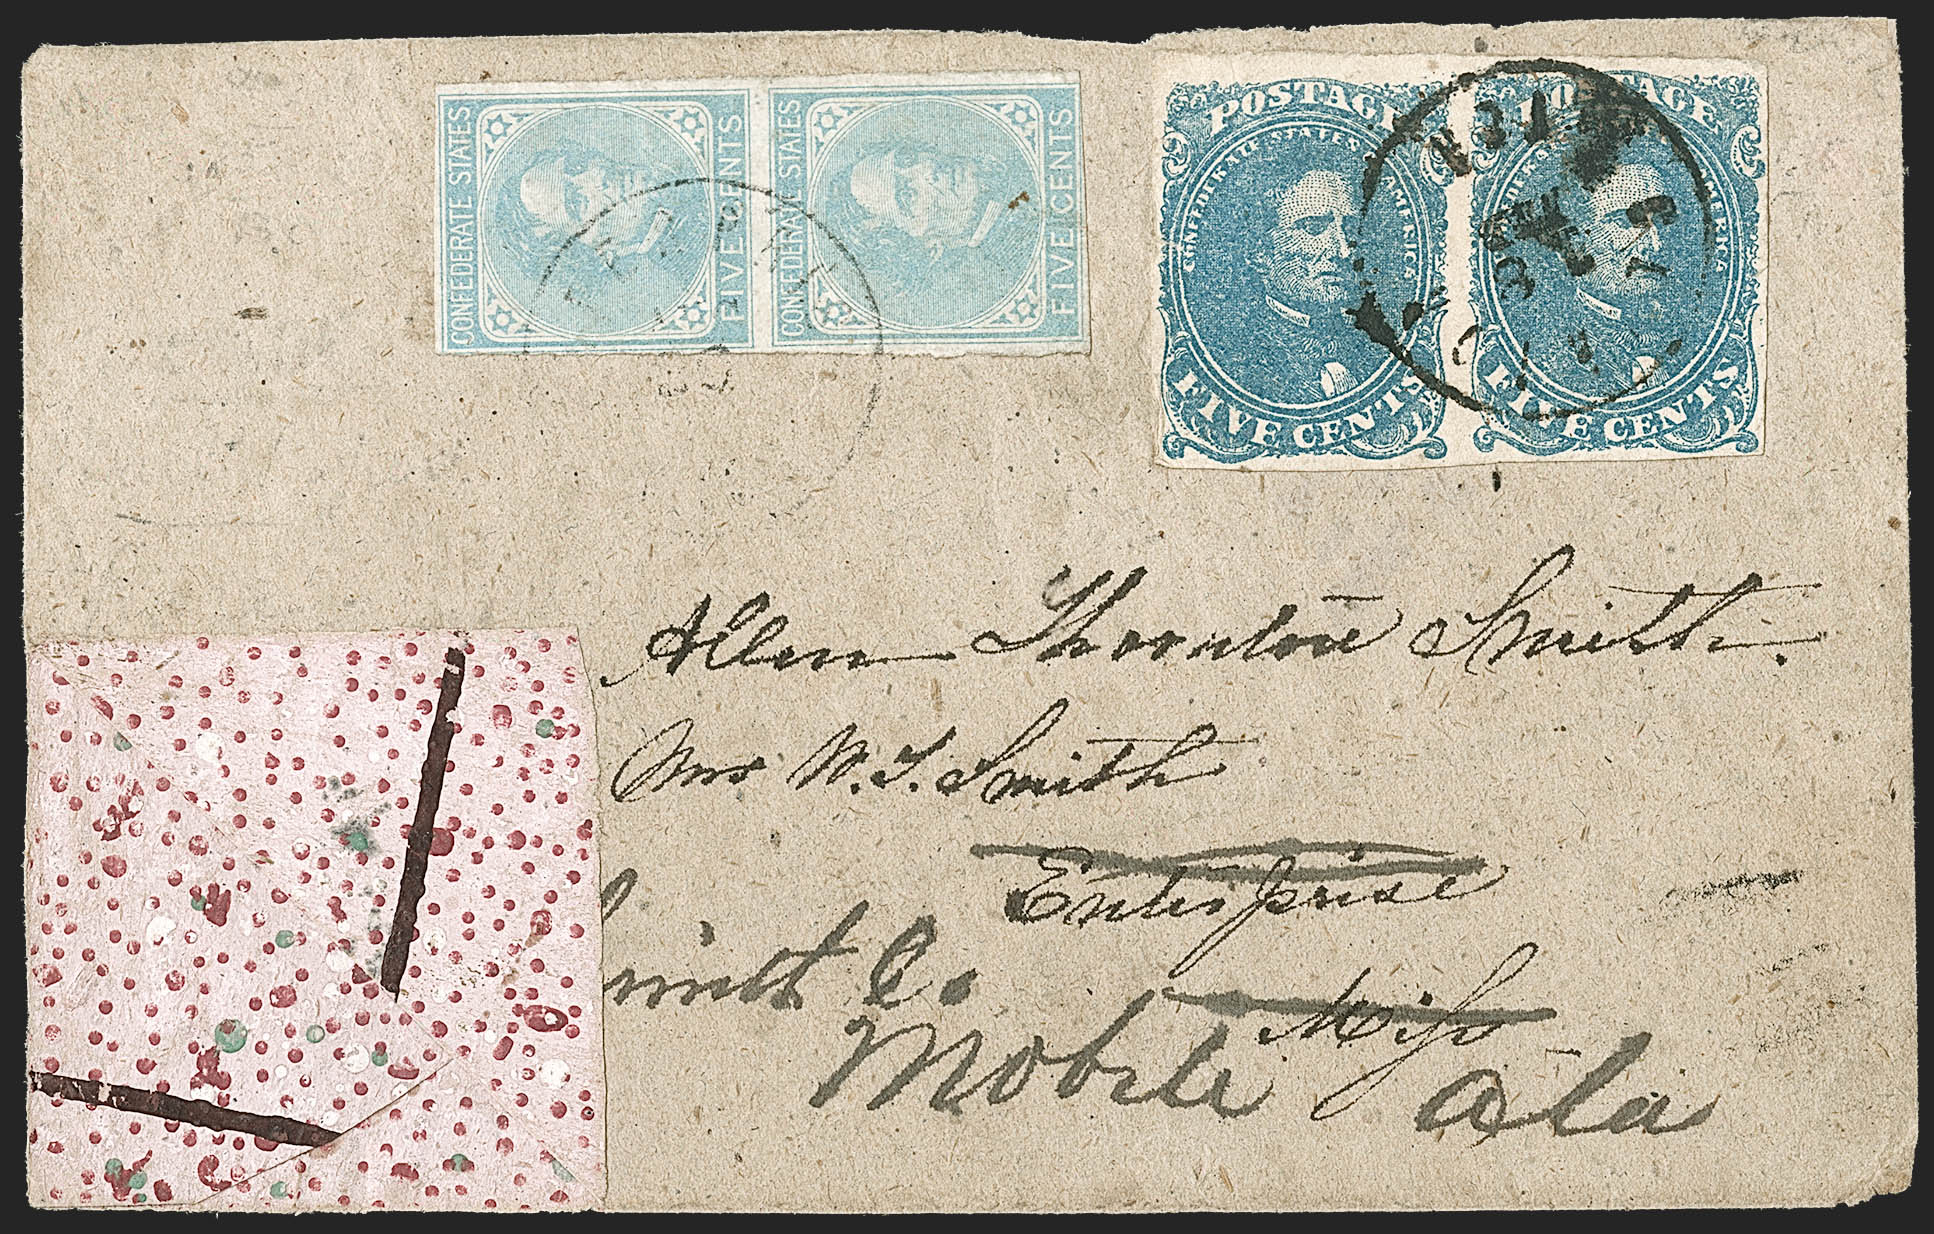 CONFEDERATE STATES
FIVE CENTS
CONFEDERATE STATES
FIVE CENTS
POSTAGE
CONFEDERATE STATES AMERICA
FIVE CENTS
POSTAGE
AMERICA
FIVE CENTS
Allen Thornton Smith.
W. T. Smith
Enterprise
Miss
Co
Mobile Ala